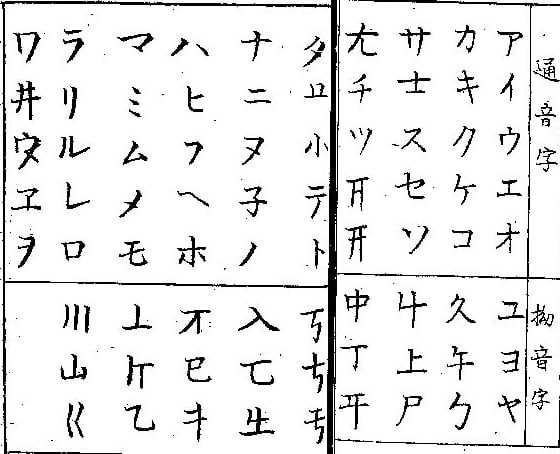 通音字
アイウエオ
カキクケコ
サ士スセソ
尢チツ开
タ小テト
ナニヌ子ノ
ハヒフヘホ
マミムメモ
ラリルレロ
ワ井ヱヲ
拗音字
ユヨヤ
久午勹
上尸
中丁平
丂
入亡生
巳
乙
川山巛